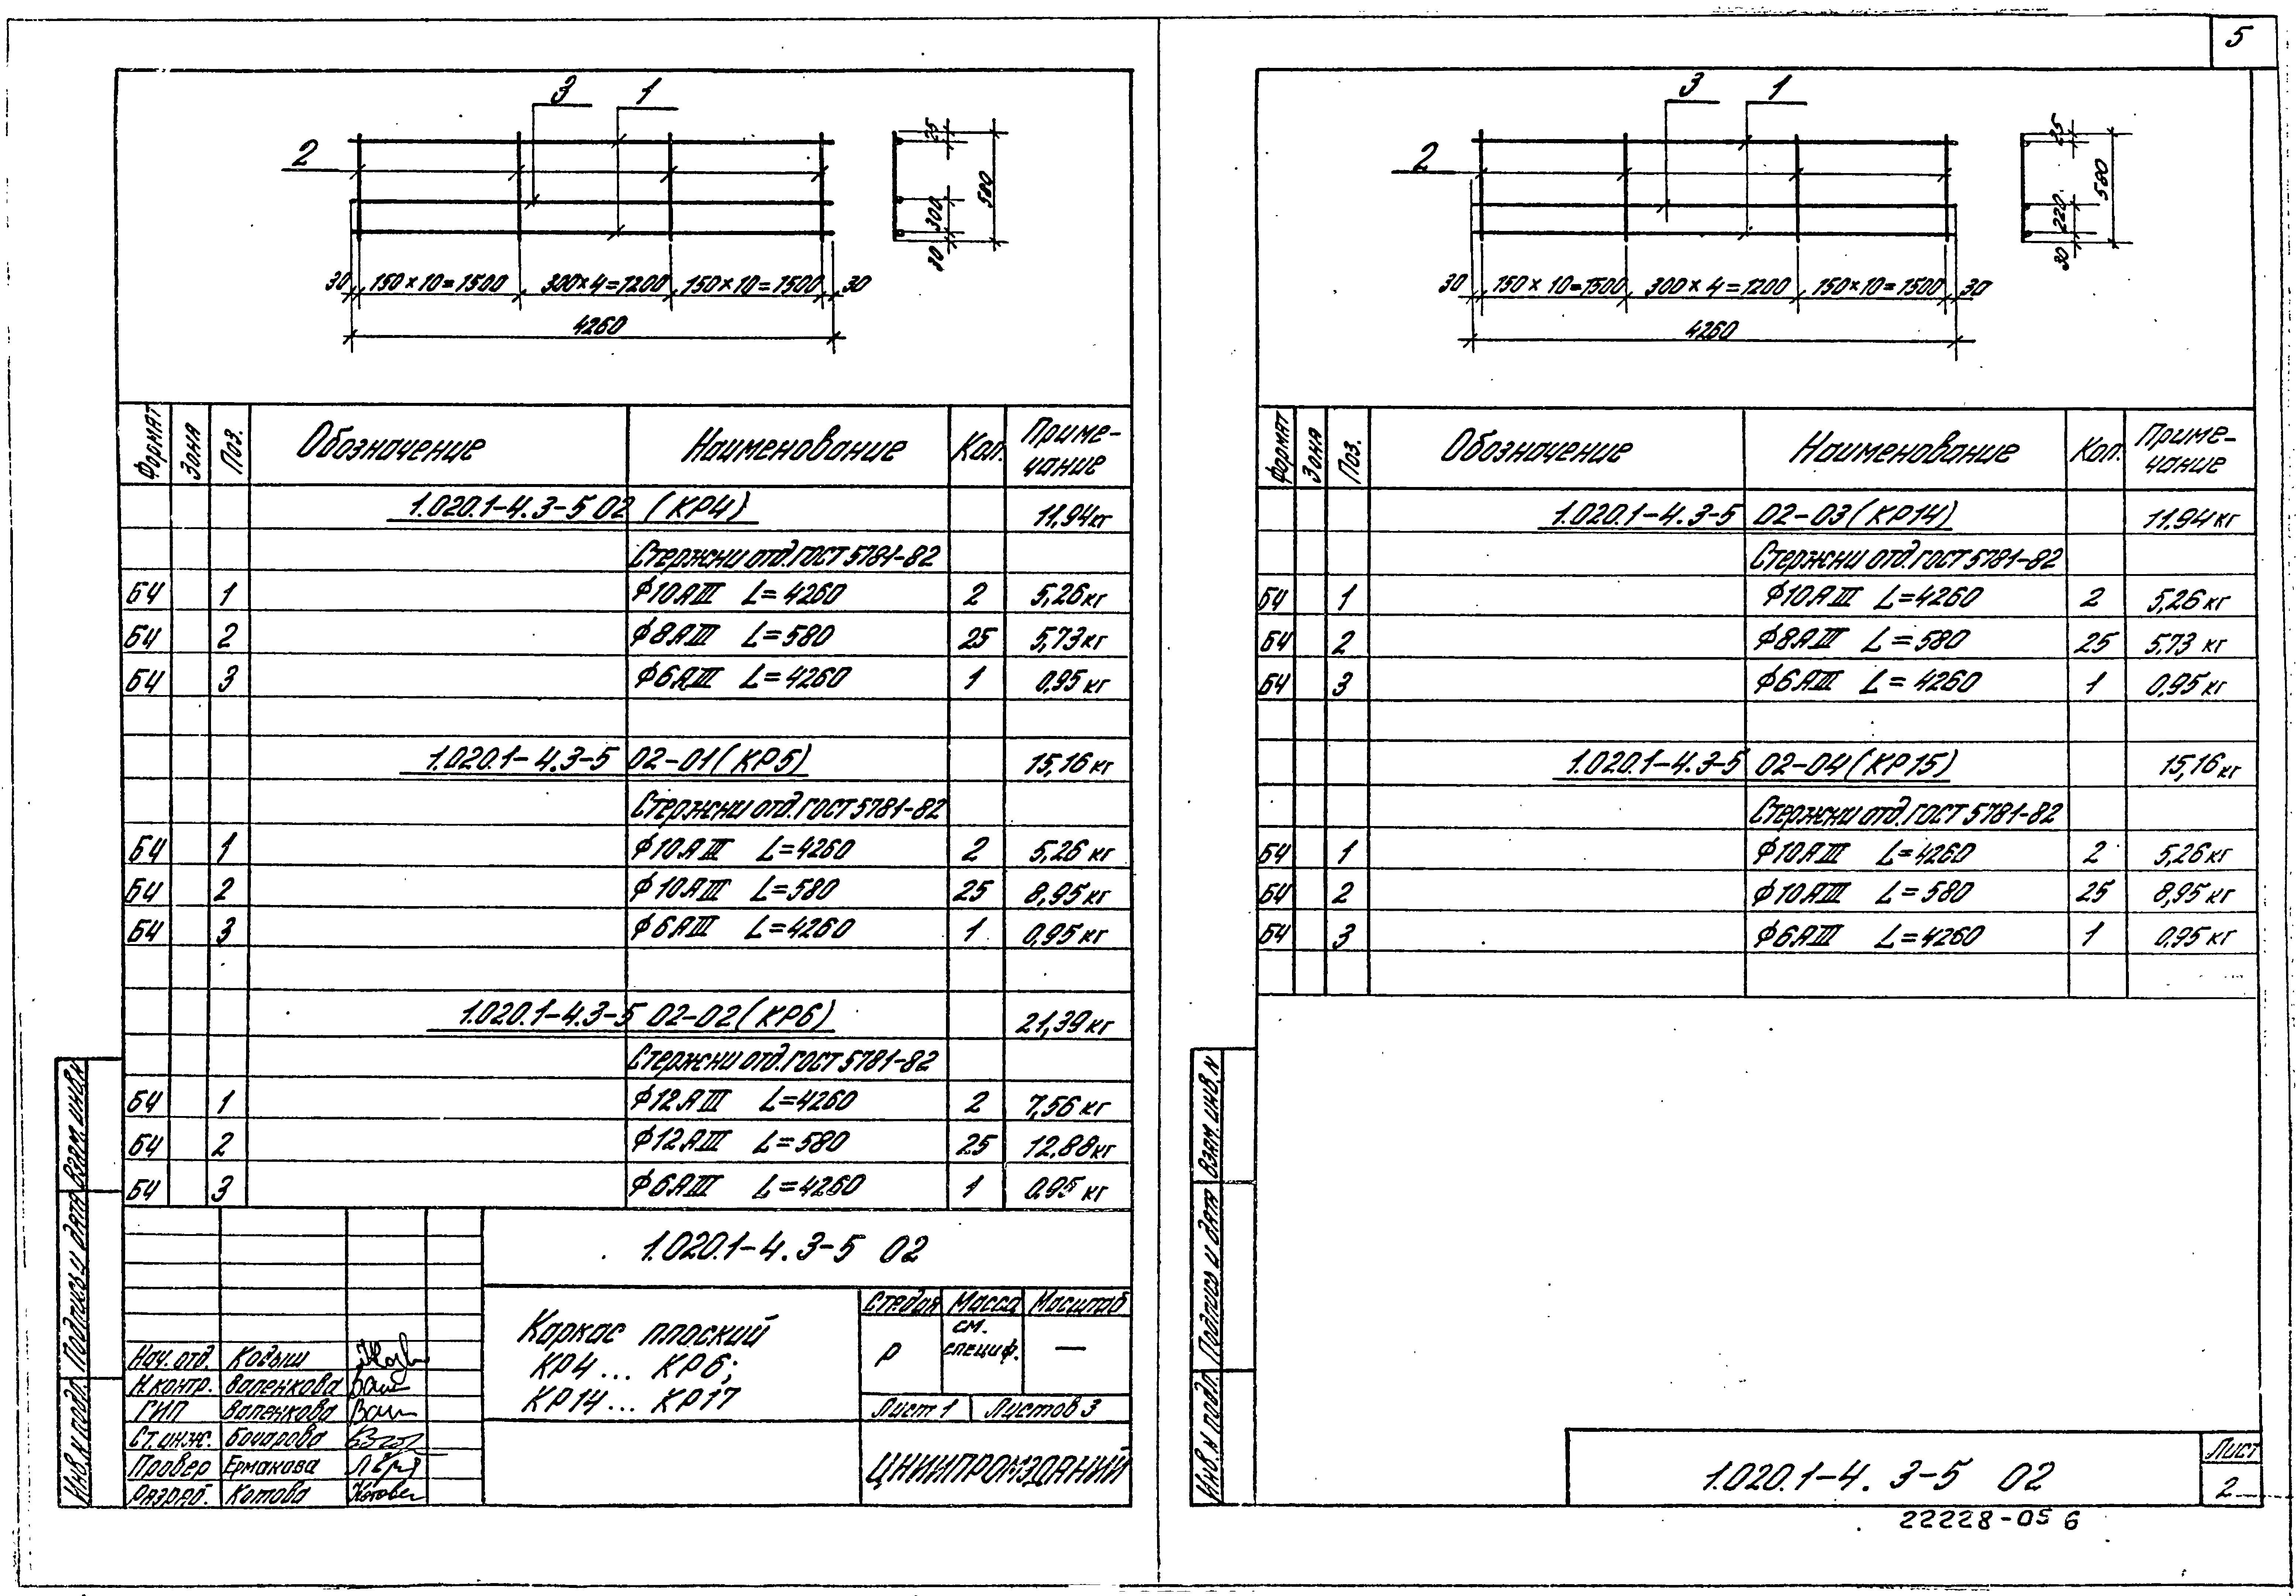 5
3 1
2
25
300
580
30
30 150×10=1500 300×4=1200 150×10=1500 30
4260
Формат Зона Поз. Обозначение Наименование Кол. Приме-
чание
1.020.1-4.3-5 02 (КР4) 11,94кг
Стержни отд. ГОСТ 5781-82
БЧ 1 ф10АIII L=4260 2 5,26кг
БЧ 2 ф8АIII L=580 25 5,73кг
БЧ 3 ф6АIII L=4260 1 0,95кг
1.020.1-4.3-5 02-01 (КР5) 15,16кг
Стержни отд. ГОСТ 5781-82
БЧ 1 ф10АIII L=4260 2 5,26кг
БЧ 2 ф10АIII L=580 25 8,95кг
БЧ 3 ф6АIII L=4260 1 0,95кг
1.020.1-4.3-5 02-02 (КР6) 21,39кг
Стержни отд. ГОСТ 5781-82
БЧ 1 ф12АIII L=4260 2 7,56кг
БЧ 2 ф12АIII L=580 25 12,88кг
БЧ 3 ф6АIII L=4260 1 0,95кг
Взам. инв. N
Подпись и дата
Инв. N подл.
1.020.1-4.3-5 02
Каркас плоский
КР4... КР6;
КР14... КР17
Стадия Масса Масштаб
Р см. специф. —
Лист 1 Листов 3
ЦНИИПРОМЗДАНИЙ
Нач. отд. Кодыш
Н.контр. Валенкова
ГИП Валенкова
Ст. инж. Бочарова
Провер Ермакова
Разраб. Котова
3 1
2
25
220
580
30
30 150×10=1500 300×4=1200 150×10=1500 30
4260
Формат Зона Поз. Обозначение Наименование Кол. Приме-
чание
1.020.1-4.3-5 02-03 (КР14) 11.94кг
Стержни отд. ГОСТ 5781-82
БЧ 1 ф10АIII L=4260 2 5,26кг
БЧ 2 ф8АIII L=580 25 5,73кг
БЧ 3 ф6АIII L=4260 1 0,95кг
1.020.1-4.3-5 02-04 (КР15) 15,16кг
Стержни отд. ГОСТ 5781-82
БЧ 1 ф10АIII L=4260 2 5,26кг
БЧ 2 ф10АIII L=580 25 8,95кг
БЧ 3 ф6АIII L=4260 1 0,95кг
Взам. инв. N
Подпись и дата
Инв. N подл.
1.020.1-4.3-5 02
Лист
2
22228-05 6